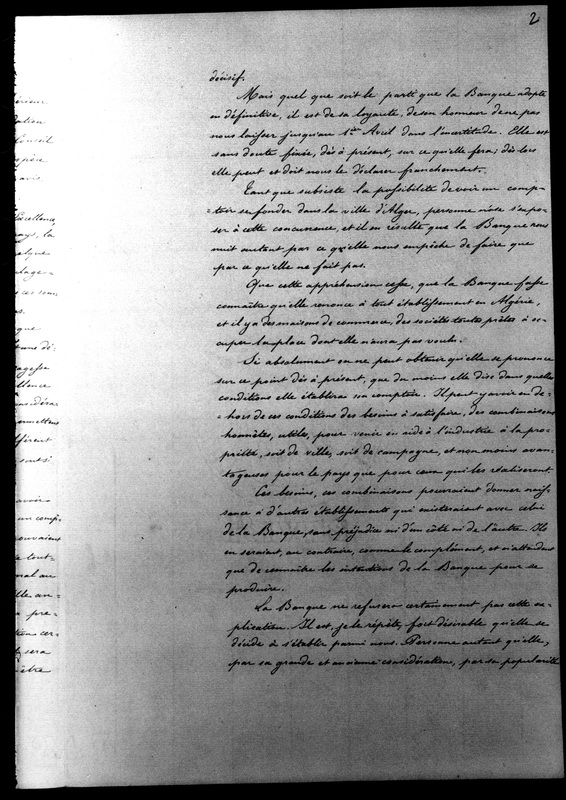 2
décisif.
Mais quel que soit le parti que la Banque adopte
en définitive, il est de sa loyauté, de son honneur de ne pas
nous laisser jusqu'au 1er Avril dans l'incertitude. Elle est
sans doute fixée, dès à présent, sur ce qu'elle fera; dès lors
elle peut et doit nous le déclarer franchement.
Tant que subsiste la possibilité de voir un comp-
-toir se fonder dans la ville d'Alger, personne n'ose s'expo-
ser à cette concurrence, et il en résulte que la Banque nous
nuit autant par ce qu'elle nous empêche de faire que
par ce qu'elle ne fait pas.
Que cette appréhension cesse, que la Banque fasse
connaître qu'elle renonce à tout établissement en Algérie,
et il y a des maisons de commerce, des sociétés toutes prêtes à oc-
cuper la place dont elle n'aura pas voulu.
Si absolument on ne peut obtenir qu'elle se prononce
sur ce point dès à présent, que du moins elle dise dans quelles
conditions elle établira son comptoir. Il peut y avoir en de-
-hors de ces conditions des besoins à satisfaire, des combinaisons
honnêtes, utiles, pour venir en aide à l'industrie à la pro-
priété, soit de ville, soit de campagne, et non moins avan-
tageuses pour le pays que pour ceux qui les réaliseront.
Ces besoins, ces combinaisons pourraient donner nais-
sance à d'autres établissements qui existeraient avec celui
de la Banque, sans préjudice ni d'un côté ni de l'autre. Ils
en seraient, au contraire, comme le complément, et n'attendent
que de connaître les intentions de la Banque pour se
produire.
La Banque ne refusera certainement pas cette ex-
plication. Il est, je le répète, fort désirable qu'elle se
décide à s'établir parmi nous. Personne autant qu'elle,
par sa grande et ancienne considération, par sa popularité